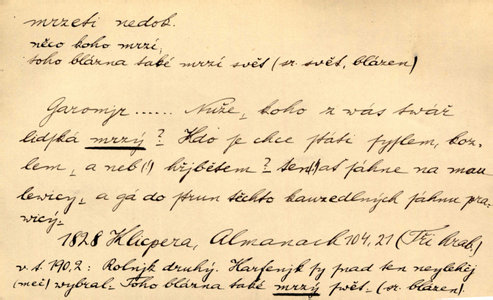 mrzeti nedok.
něco koho mrzí,
toho blázna také mrzí svět (sr. svět, blázen)
Garomjr ...... Nuže, koho z wás twář
lidſká mrzý? Kdo ſe chce ſtáti ſyſlem, koz-
lem, a neb(!) hřjbětem? ten(!)ať ſáhne na mau
lewicy, a gá do ſtrun těchto kauzedlných ſáhnu pra-
wicý.
1828 Klicpera, Almanach 104,21 (Tři hrab.)
v. t. 190,2: Rolnjk druhý. Harfenjk ſy ſnad ten neylehčj
(meč) wybral - Toho blázna také mrzý ſwět. - (sr. blázen).